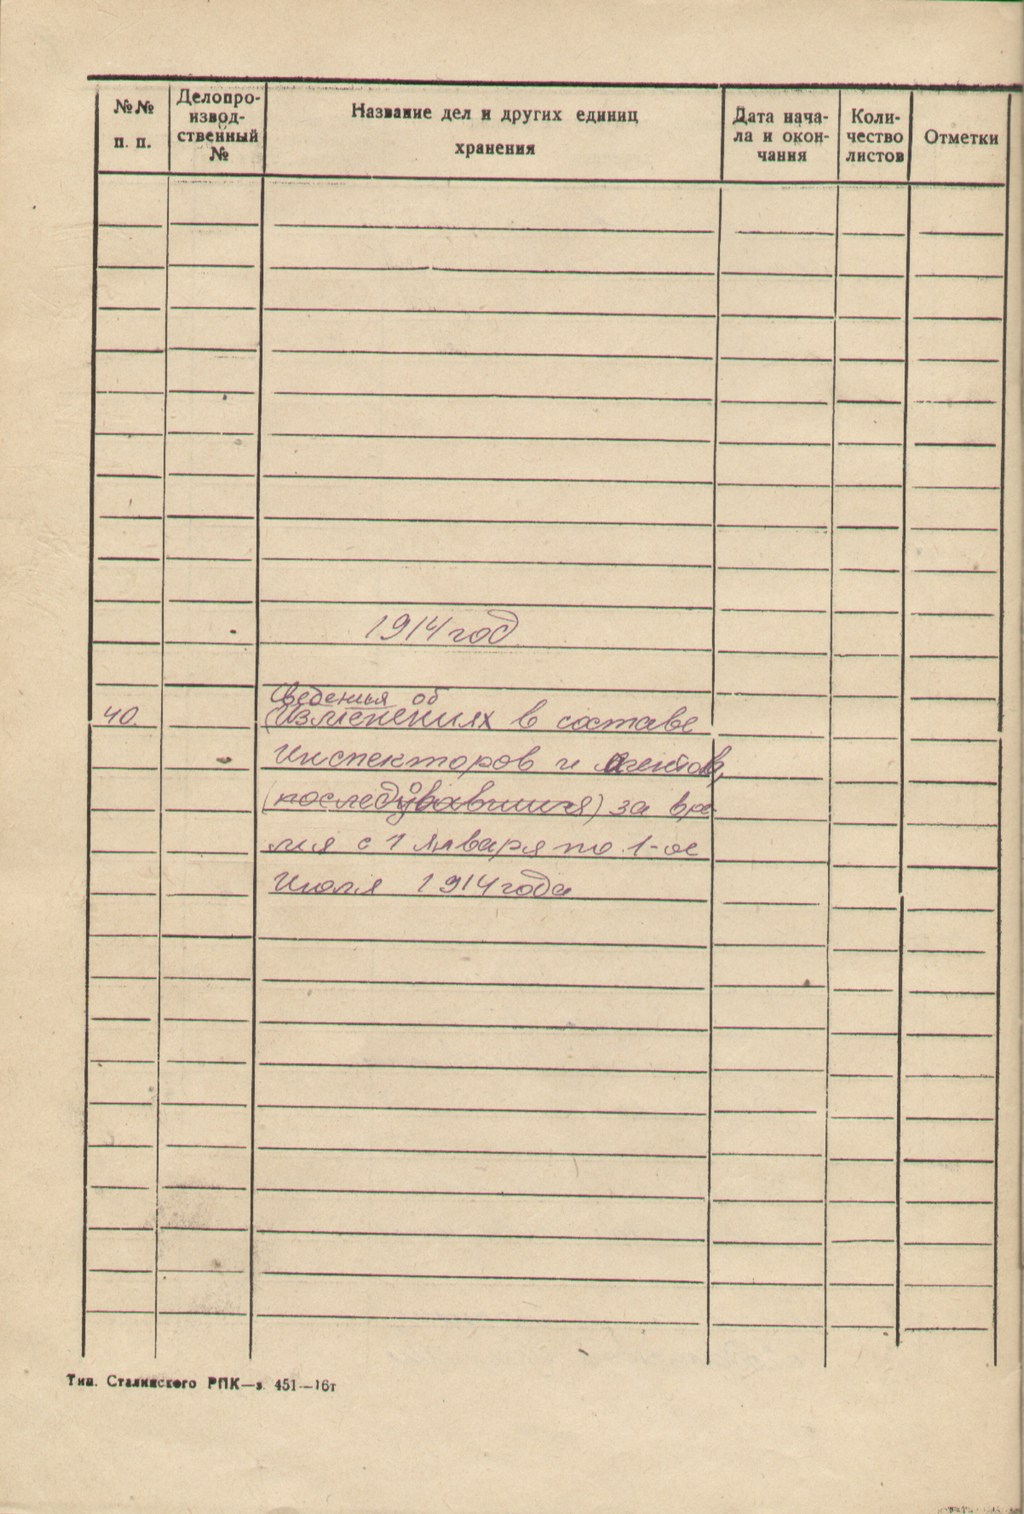 №№
п. п.
Делопро-
извод-
ственный
№
Название дел и других единиц
хранения
Дата нача-
ла и окон-
чания
Коли-
чество
листов
Отметки
1914 год
Сведенья об
40. (Изменениях в составе
Инспекторов и Агентов,
(последовавшися) за вре
мя с 1 Января по 1-ое
Июля 1914 года
Тип. Сталинского РПК—з. 451—16т